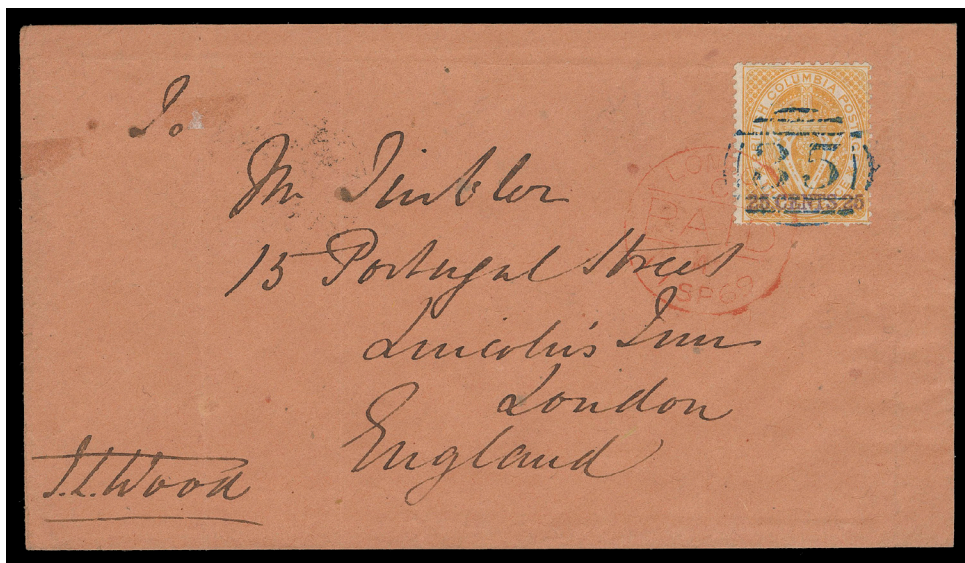 To
Mr Tinkler
15 Portugal Street
Lincoln's Inn
London
England
J.L. Wood
BRITISH COLUMBIA POSTAGE
35
25 CENTS 25
LON
PAID
SP69